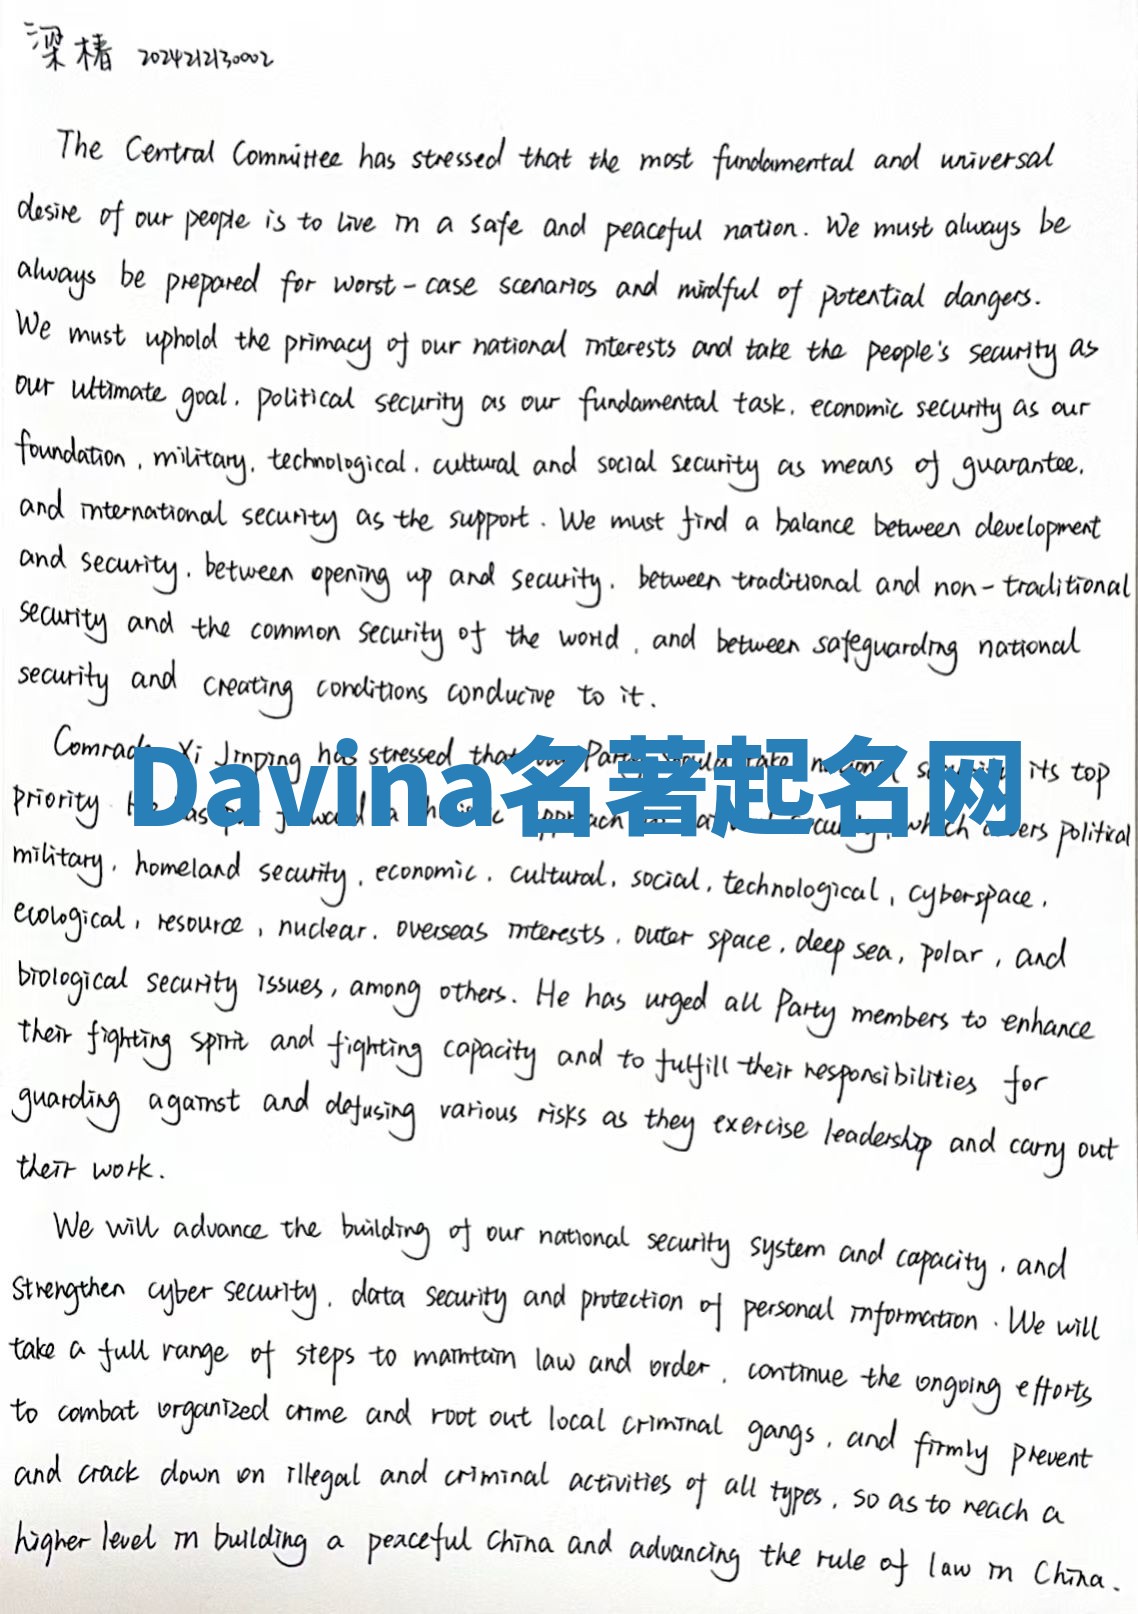 梁椿 2024212130002
The Central Committee has stressed that the most fundamental and universal
desire of our people is to live in a safe and peaceful nation. We must always be
always be prepared for worst-case scenarios and mindful of potential dangers.
We must uphold the primacy of our national interests and take the people's security as
our ultimate goal, political security as our fundamental task, economic security as our
foundation, military, technological, cultural and social security as means of guarantee,
and international security as the support. We must find a balance between development
and security, between opening up and security, between traditional and non-traditional
security and the common security of the world, and between safeguarding national
security and creating conditions conducive to it.
Comrade Xi Jinping has stressed that Party its top
Davina名著起名网
priority a which political
military, homeland security, economic, cultural, social, technological, cyberspace,
ecological, resource, nuclear, overseas interests, outer space, deep sea, polar, and
biological security issues, among others. He has urged all Party members to enhance
their fighting spirit and fighting capacity and to fulfill their responsibilities for
guarding against and defusing various risks as they exercise leadership and carry out
their work.
We will advance the building of our national security system and capacity, and
strengthen cyber security, data security and protection of personal information. We will
take a full range of steps to maintain law and order, continue the ongoing efforts
to combat organized crime and root out local criminal gangs, and firmly prevent
and crack down on illegal and criminal activities of all types, so as to reach a
higher level in building a peaceful China and advancing the rule of law in China.